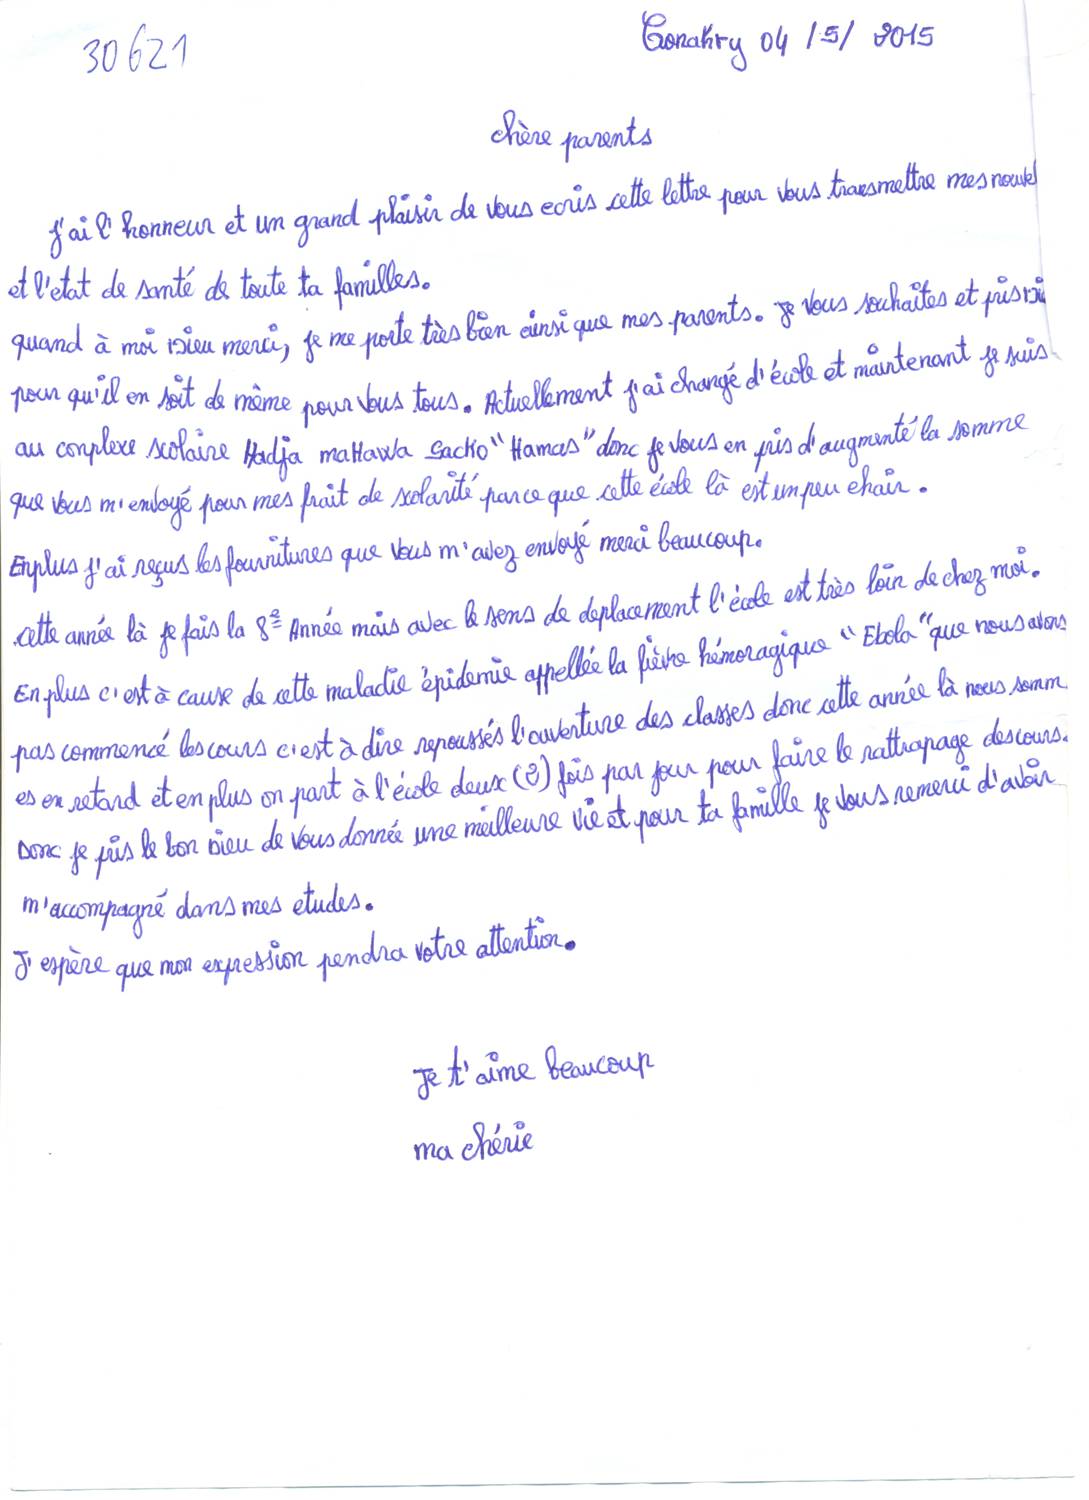 30621
Conakry 04 /5/ 2015
chère parents
j'ai l'honneur et un grand plaisir de vous ecris cette lettre pour vous transmettre mes nouvel
et l'etat de santé de toute ta familles.
quand à moi Dieu merci, je me porte très bien ainsi que mes parents. je vous souhaites et pris Di
pour qu'il en soit de même pour vous tous. Actuellement j'ai changé d'école et maintenant je suis
au conplexe scolaire Hadja mattawa Sacko "Hamas" donc je vous en pris d'augmenté la somme
que vous m'envoyé pour mes frait de scolarité parce que cette école là est un peu chair.
Enplus j'ai reçus les fournitures que vous m'avez envoyé merci beaucoup.
cette année là je fais la 8e Année mais avec le sens de deplacement l'école est très loin de chez moi.
En plus c'est à cause de cette maladie épidemie appellée la fièvre hémoragique "Ebola" que nous avons
pas commencé les cours c'est à dire repoussés l'ouverture des classes donc cette année là nous somm
es en retard et en plus on part à l'école deux (2) fois par jour pour faire le rattrapage des cours.
Donc je pris le bon Dieu de vous donnée une meilleure vie et pour ta famille je vous remerci d'avoir
m'accompagné dans mes etudes.
J'espère que mon expression pendra votre attention.
Je t'aime beaucoup
ma chérie